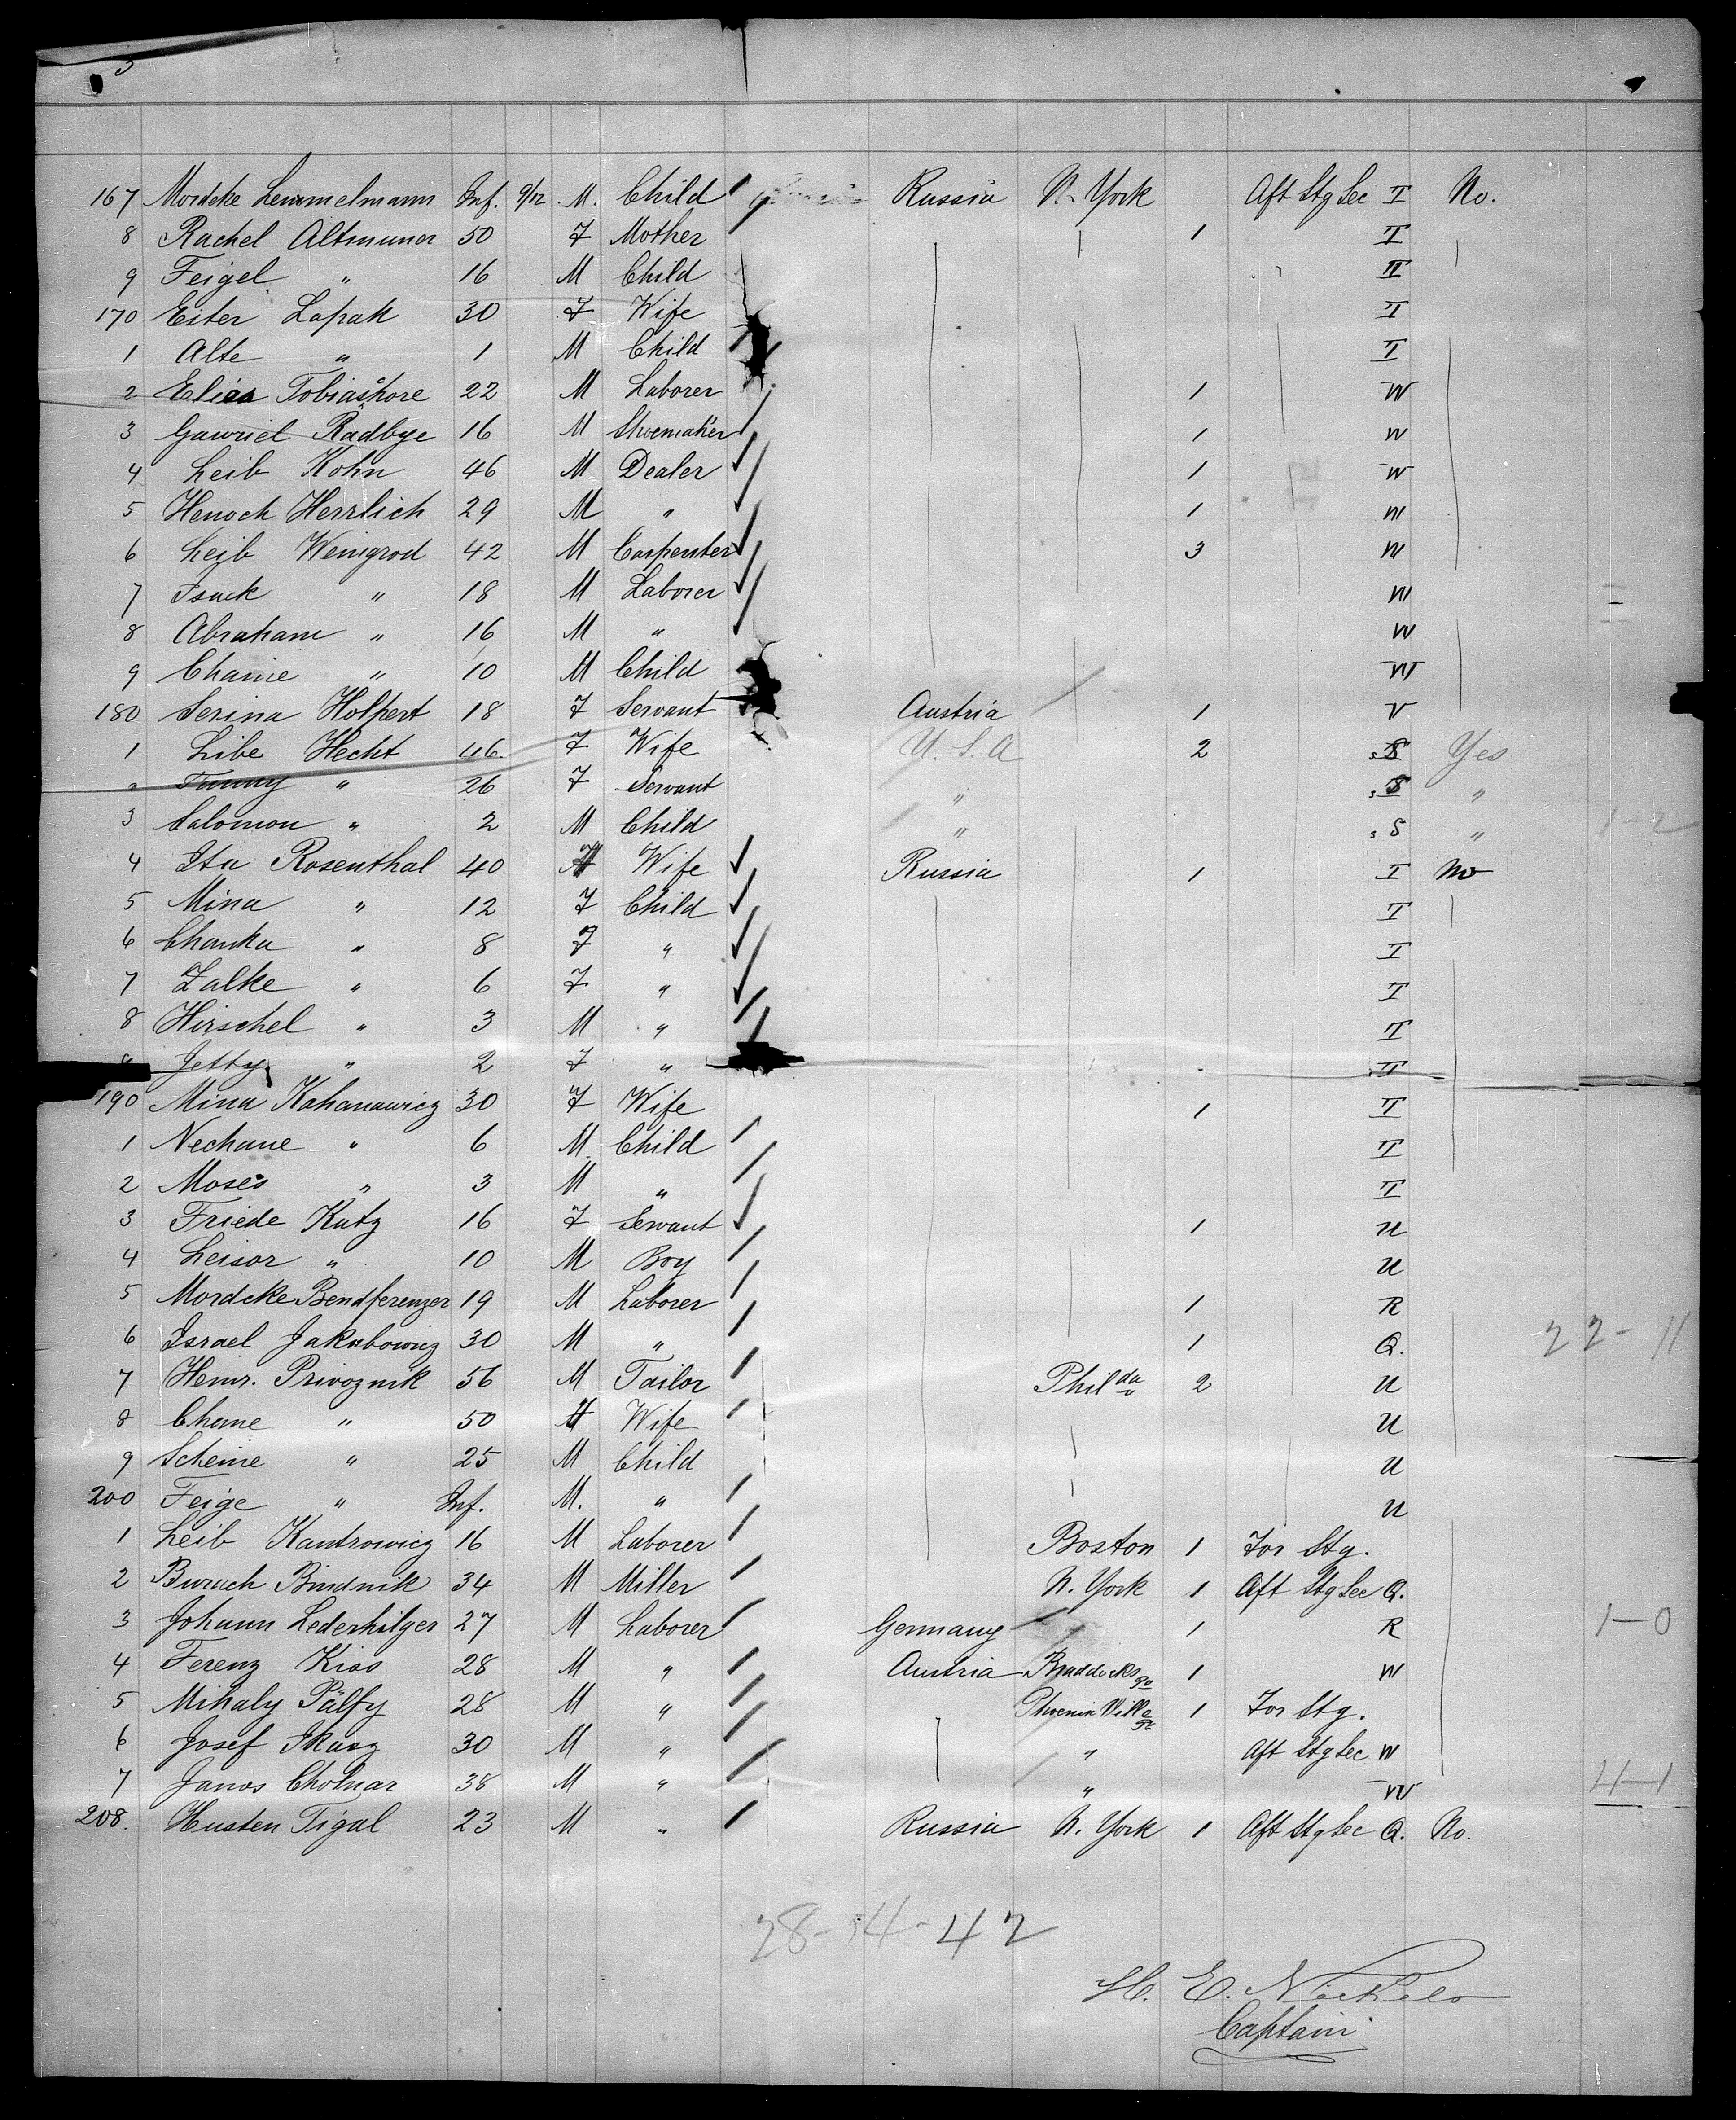 3
167 Mordcke Lemmelmann Inf. 9/12 M. Child Russia N. York Aft Stg Sec T No.
8 Rachel Altmuner 50 F Mother 1 T
9 Feigel " 16 M Child T
170 Ester Lapak 30 F Wife T
1 Alte " 1 M Child T
2 Elias Tobiashore 22 M Laborer 1 W
3 Gawriel Radbye 16 M Shoemaker 1 W
4 Leib Kohn 46 M Dealer 1 W
5 Henoch Herrlich 29 M " 1 W
6 Leib Weingrod 42 M Carpenter 3 W
7 Isack " 18 M Laborer W
8 Abraham " 16 M " W
9 Chaine " 10 M Child W
180 Serina Holpert 18 F Servant Austria 1 V
1 Libe Hecht 46 F Wife U. S. A 2 S Yes
2 Fanny " 26 F Servant " S "
3 Salomon " 2 M Child " S " 1-2
4 Ita Rosenthal 40 F Wife Russia 1 T No
5 Mina " 12 F Child T
6 Chanka " 8 F " T
7 Zalke " 6 F " T
8 Hirschel " 3 M " T
9 Jetty " 2 F " T
190 Mina Kahanawicz 30 F Wife 1 T
1 Nechane " 6 M Child T
2 Moses " 3 M " T
3 Friede Katz 16 F Servant 1 U
4 Leisor " 10 M Boy U
5 Mordcke Bendferenzer 19 M Laborer 1 R
6 Israel Jakubowicz 30 M " 1 Q. 22-11
7 Heinr. Privoznik 56 M Tailor Philda 2 U
8 Chane " 50 F Wife U
9 Scheine " 25 M Child U
200 Feige " Inf. M. " U
1 Leib Kantrowicz 16 M Laborer Boston 1 For Stg.
2 Burach Brudnik 34 M Miller N. York 1 Aft Stg Sec Q.
3 Johann Lederhilger 27 M Laborer Germany 1 R 1-0
4 Ferenz Kiss 28 M " Austria Braddocks Pa 1 W
5 Mihaly Pálfy 28 M " Phoenixville Pa 1 For Stg.
6 Josef 30 M " " Aft Stg Sec W
7 Janos Cholnar 38 M " " W 4-1
208. Husten Tigal 23 M " Russia N. York 1 Aft Stg Sec Q. No.
28-14-42
H. E. Nickels
Captain